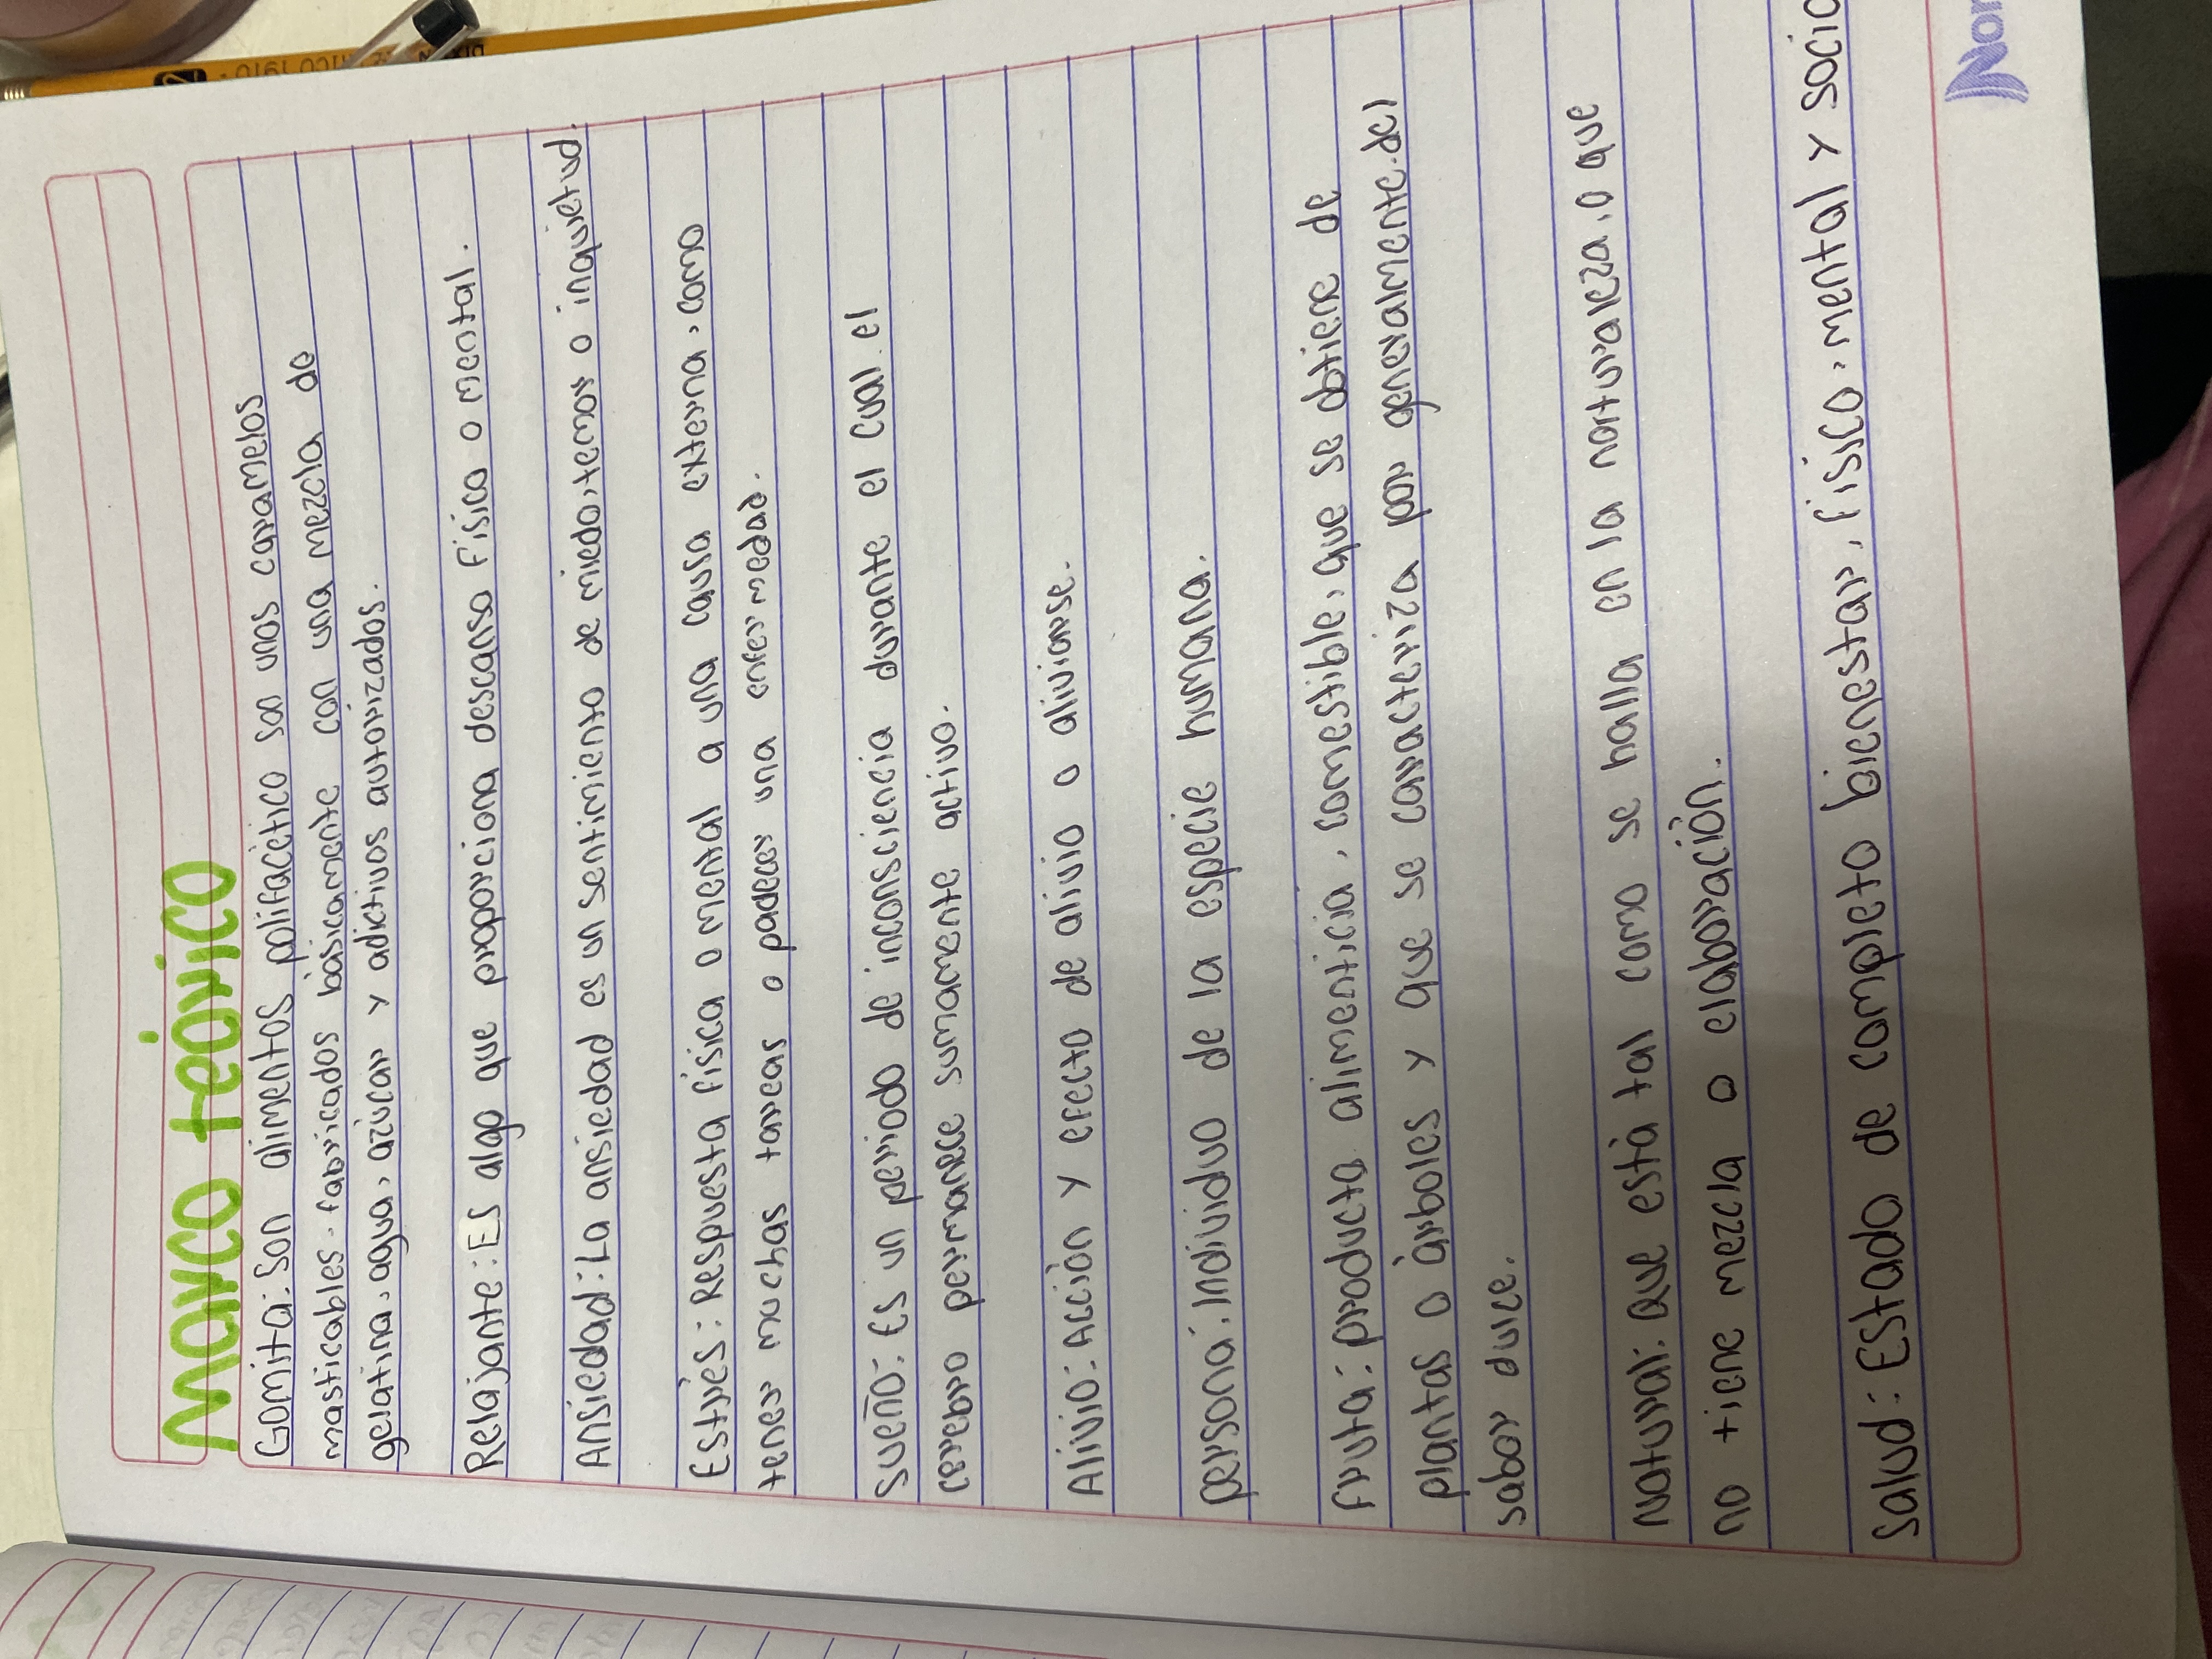 Marco teórico
Gomita: Son alimentos polifacético son unos caramelos
masticables. fabricados básicamente con una mezcla de
gelatina, agua, azúcar y adictivos autorizados.
Relajante: Es algo que proporciona descanso Físico o mental.
Ansiedad: La ansiedad es un sentimiento de miedo, temor o inquietud.
Estrés: Respuesta física o mental a una causa externa, como
tener muchas tareas o padecer una enfermedad.
Sueño: Es un periodo de inconsciencia durante el cual el
cerebro permanece sumamente activo.
Alivio: Acción y efecto de alivio o aliviarse.
persona: Individuo de la especie humana.
fruta: producto alimenticia, comestible, que se obtiene de
plantas o árboles y que se caracteriza por generalmente del
sabor dulce.
Natural: que está tal como se halla en la naturaleza, o que
no tiene mezcla o elaboración.
Salud: Estado de completo bienestar, físico, mental y socio
Nor